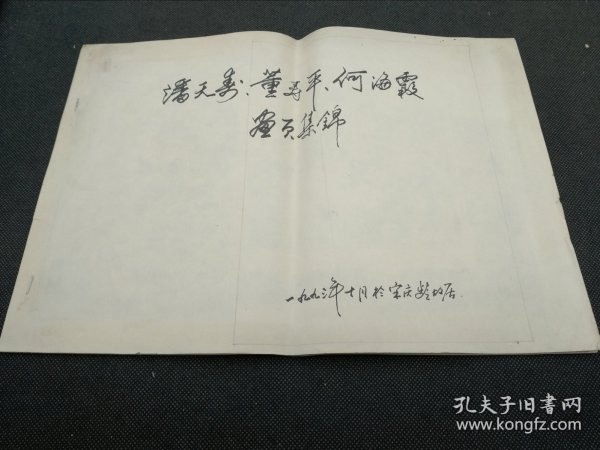 潘天寿、董寿平、何海霞
画页集錦
一九九三年十月於宋庆龄故居
孔夫子旧書网
www.kongfz.com